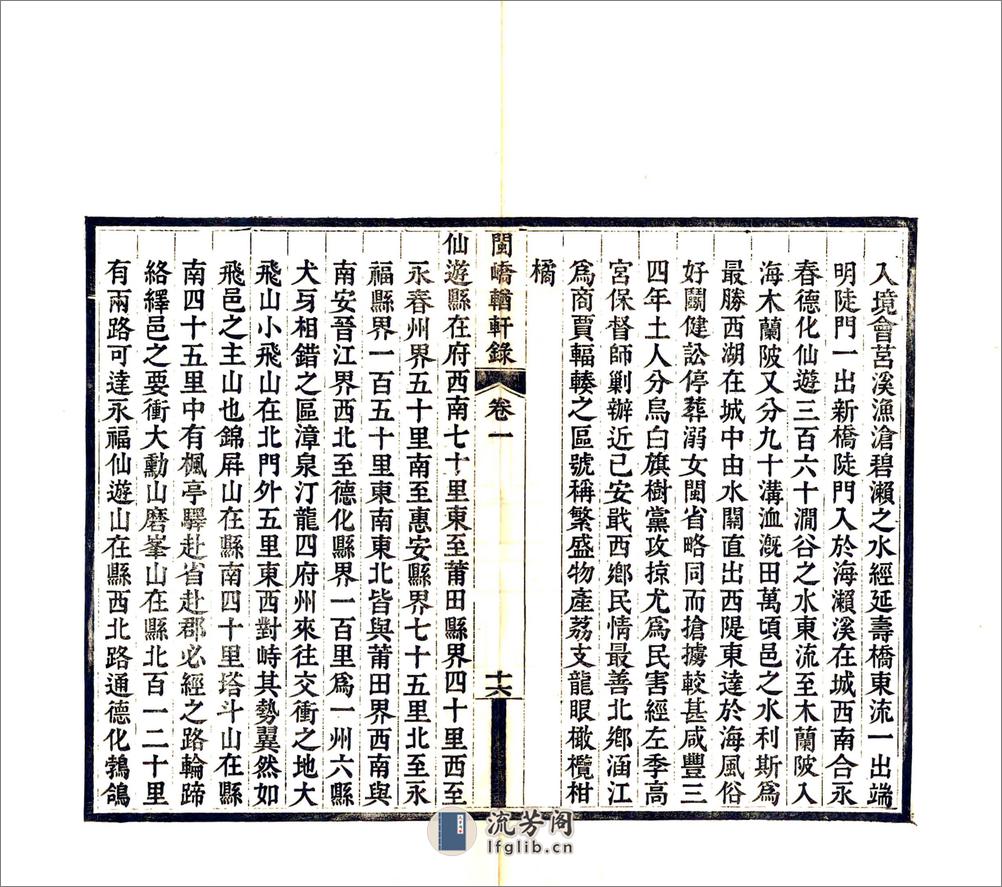 入境會莒溪漁滄碧瀨之水經延壽橋東流一出端
明陡門一出新橋陡門入於海瀨溪在城西南合永
春德化仙遊三百六十澗谷之水東流至木蘭陂入
海木蘭陂又分九十溝洫漑田萬頃邑之水利斯爲
最勝西湖在城中由水關直出西隄東達於海風俗
好鬭健訟停葬溺女閩省略同而搶擄較甚咸豐三
四年土人分烏白旗樹黨攻掠尤爲民害經左季高
宮保督師剿辦近已安戢西鄉民情最善北鄉涵江
爲商賈輻輳之區號稱繁盛物產荔支龍眼橄欖柑
橘
閩嶠輶軒錄 卷一 十六
仙遊縣在府西南七十里東至莆田縣界四十里西至
永春州界五十里南至惠安縣界七十五里北至永
福縣界一百五十里東南東北皆與莆田界西南與
南安晉江界西北至德化縣界一百里爲一州六縣
犬牙相錯之區漳泉汀龍四府州來往交衝之地大
飛山小飛山在北門外五里東西對峙其勢翼然如
飛邑之主山也錦屏山在縣南四十里塔斗山在縣
南四十五里中有楓亭驛赴省赴郡必經之路輪蹄
絡繹邑之要衝大勳山磨峯山在縣北百一二十里
有兩路可達永福仙遊山在縣西北路通德化鵓鴿
流芳阁
lfglib.cn